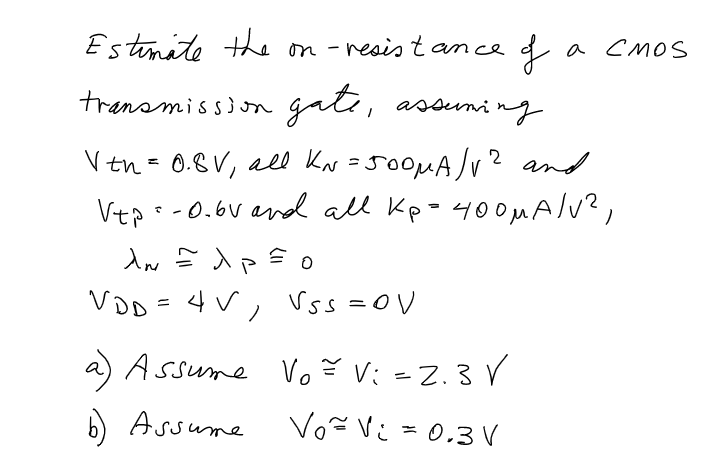 Estimate the on-resistance of a CMOS
transmission gate, assuming
Vtn = 0.8V, all KN = 500μA/V² and
Vtp = -0.6V and all Kp = 400μA/V²,
λN ≅ λP ≅ 0
VDD = 4V, VSS = 0V
a) Assume Vo ≅ Vi = 2.3 V
b) Assume Vo ≅ Vi = 0.3 V